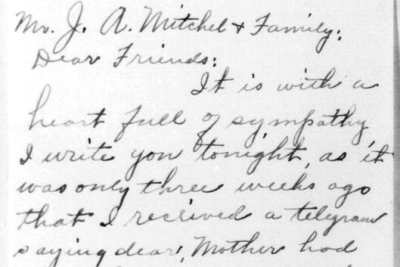 Mr. J. A. Mitchel & Family:
Dear Friends:
It is with a
heart full of sympathy,
I write you tonight, as it
was only three weeks ago
that I received a telegram
saying dear, Mother had